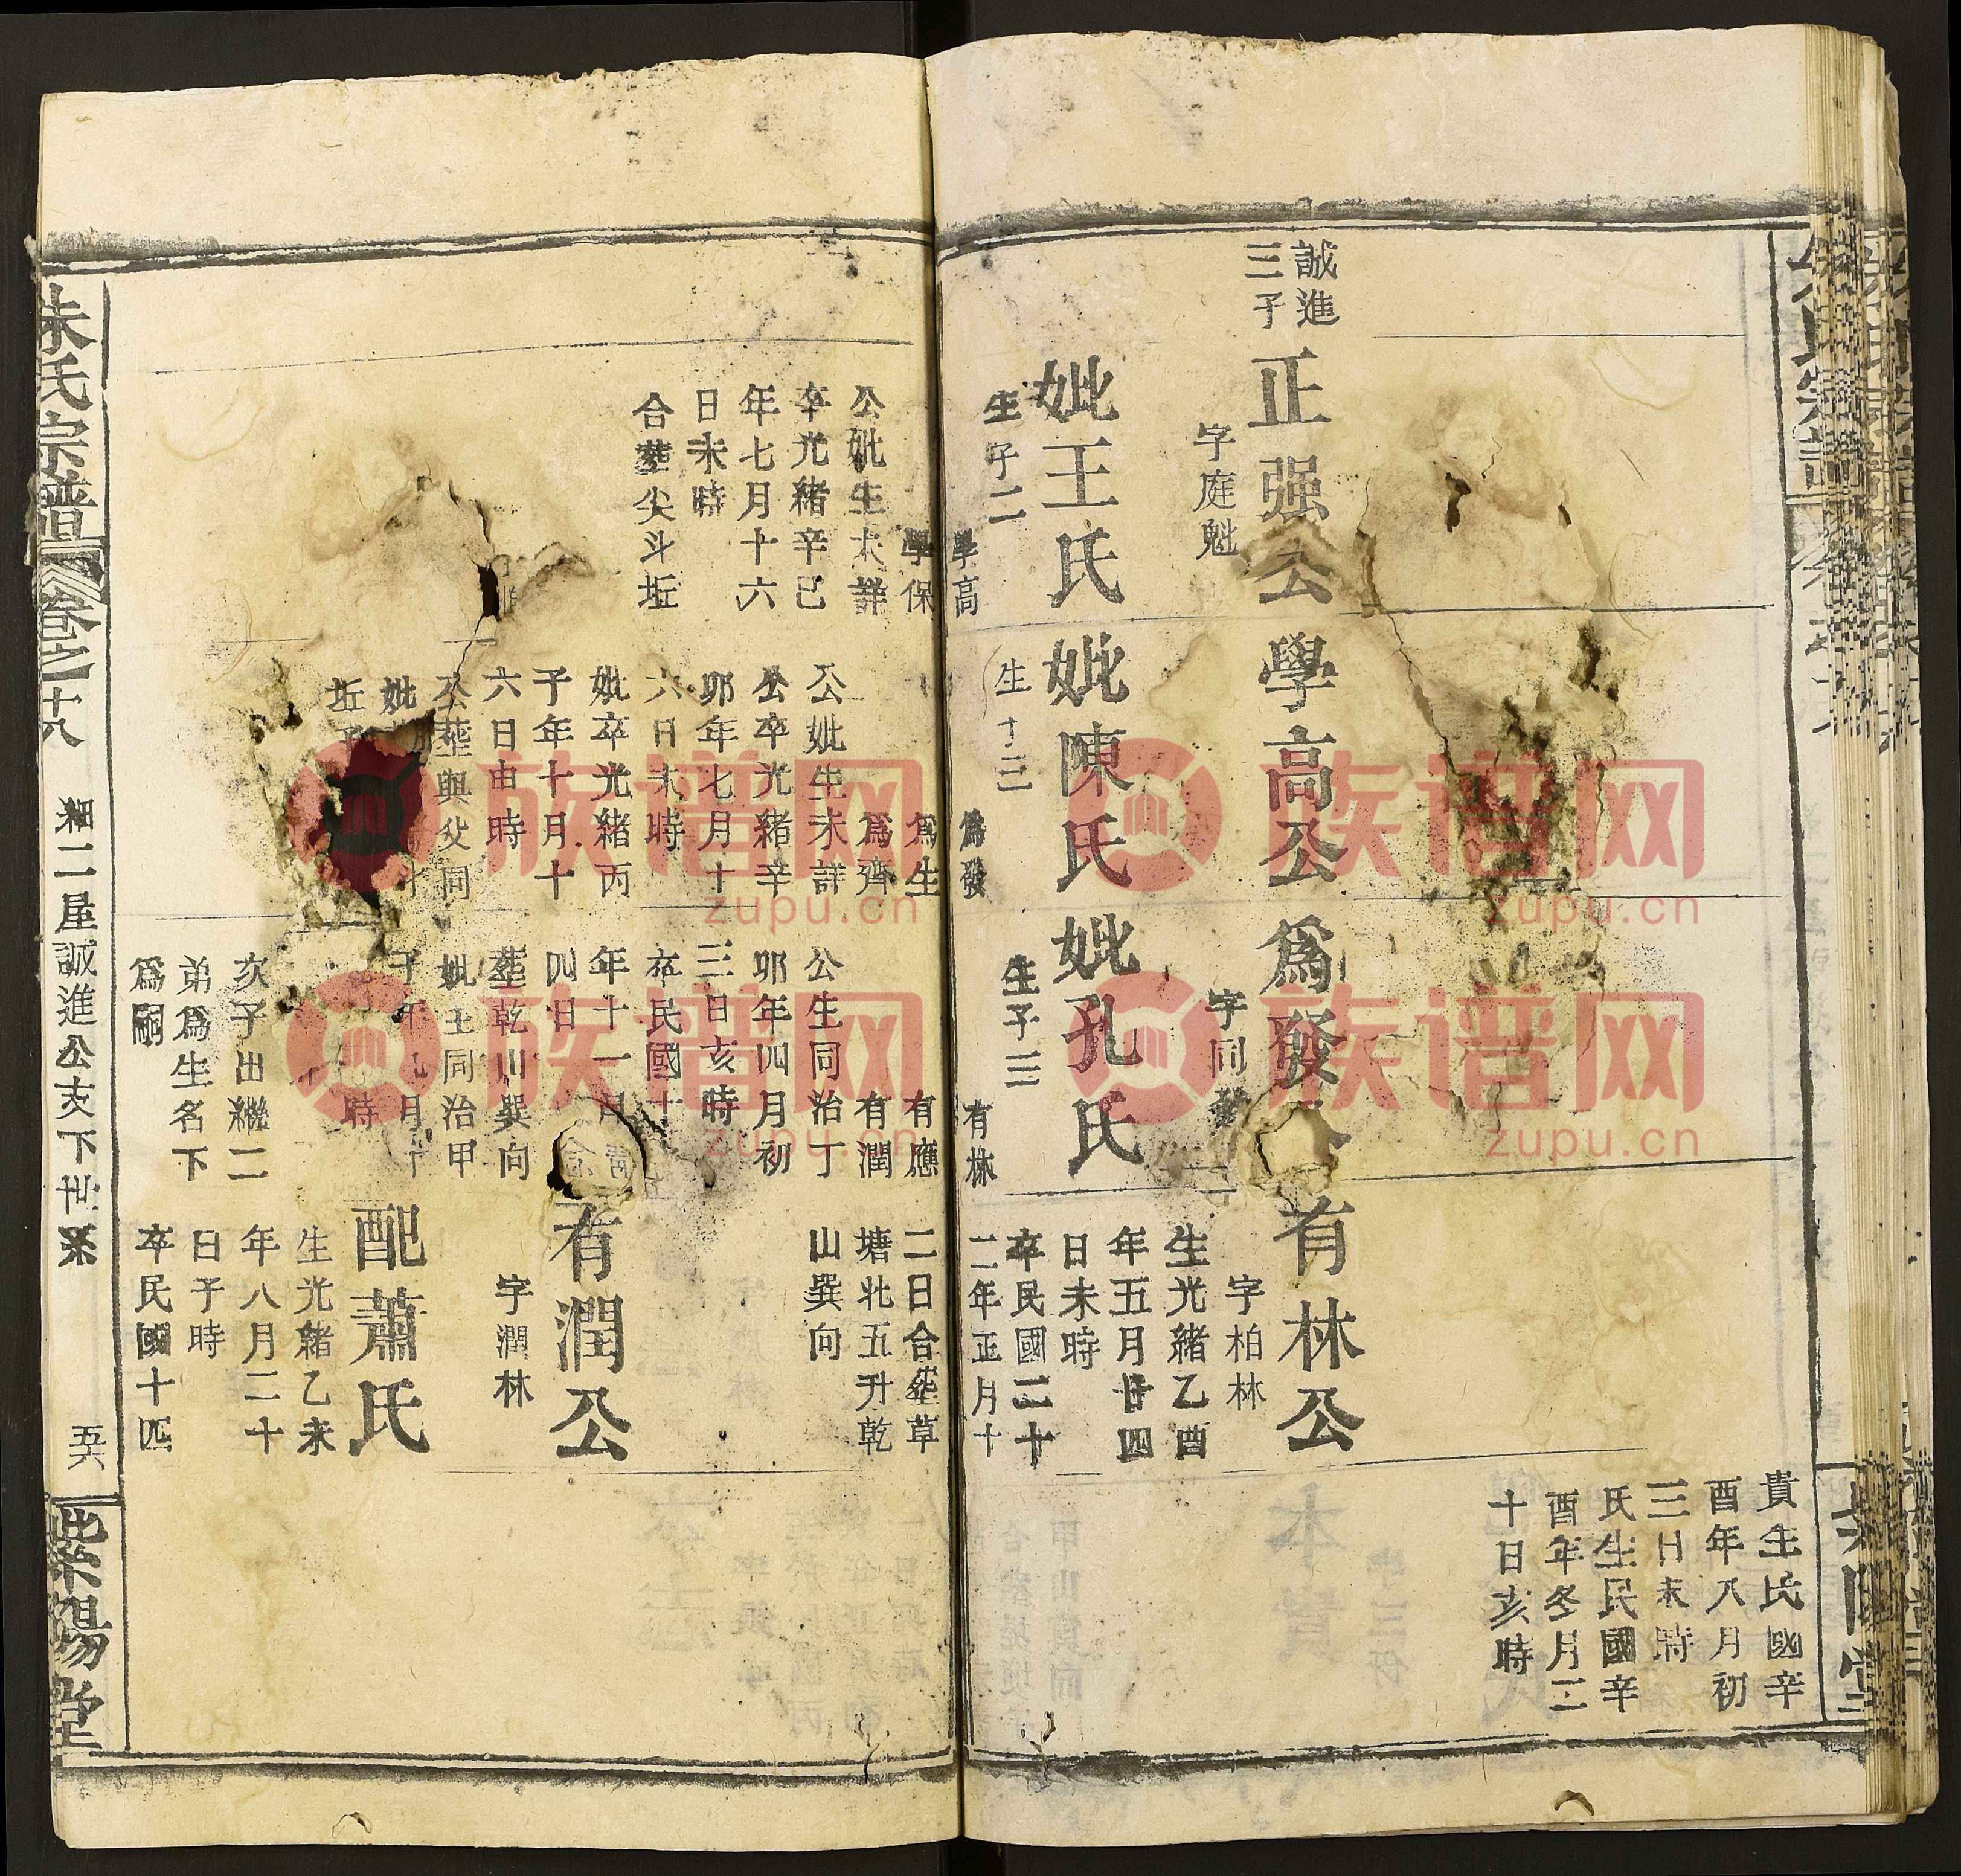 誠進
三子
正强公
字庭魁
妣王氏
生子二
學高
學保
公妣生未詳
卒光緒辛巳
年七月十六
日未時
合塟尖斗坵
學高公
妣陳氏
生子三
爲發
爲生
爲齊
公妣生未詳
公卒光緒辛
卯年七月十
六日未時
妣卒光緒丙
子年十月十
六日由時
公塟與父同
妣
坵
爲發
字同發
妣孔氏
生子三
有林
有應
有潤
公生同治丁
卯年四月初
三日亥時
卒民國十
年十一月
四日
塟乾山巽向
妣生同治甲
子年
月十
時
亥子出繼二
弟爲生名下
爲嗣
有林公
字柏林
生光緒乙酉
年五月廿四
日未時
卒民國二十
二年正月十
二日合塟草
塘北五升乾
山巽向
有潤公
字潤林
配蕭氏
生光緒乙未
年八月二十
日子時
卒民國十四
貴生民國辛
酉年八月初
三日未時
氏生民國辛
酉年冬月二
十日亥時
朱氏宗譜
卷之十八
細二屋誠進公支下世系
五六
紫陽堂
族谱网
zupu.cn
族谱网
zupu.cn
族谱网
族谱网
zupu.cn